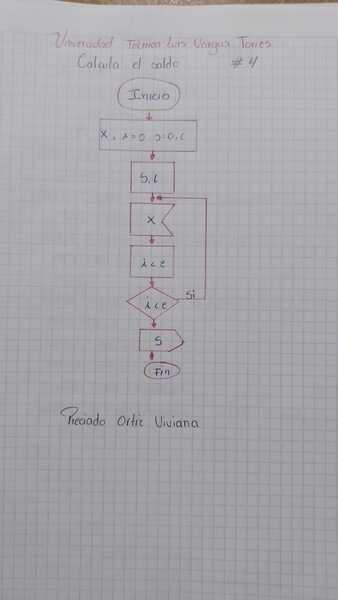 Universidad Tecnica Luis Vargas Torres
Calcula el saldo # 4
Inicio
X, i=0, S=0, c
S, c
X
i < c
i < c Si
S
Fin
Preciado Ortiz Viviana